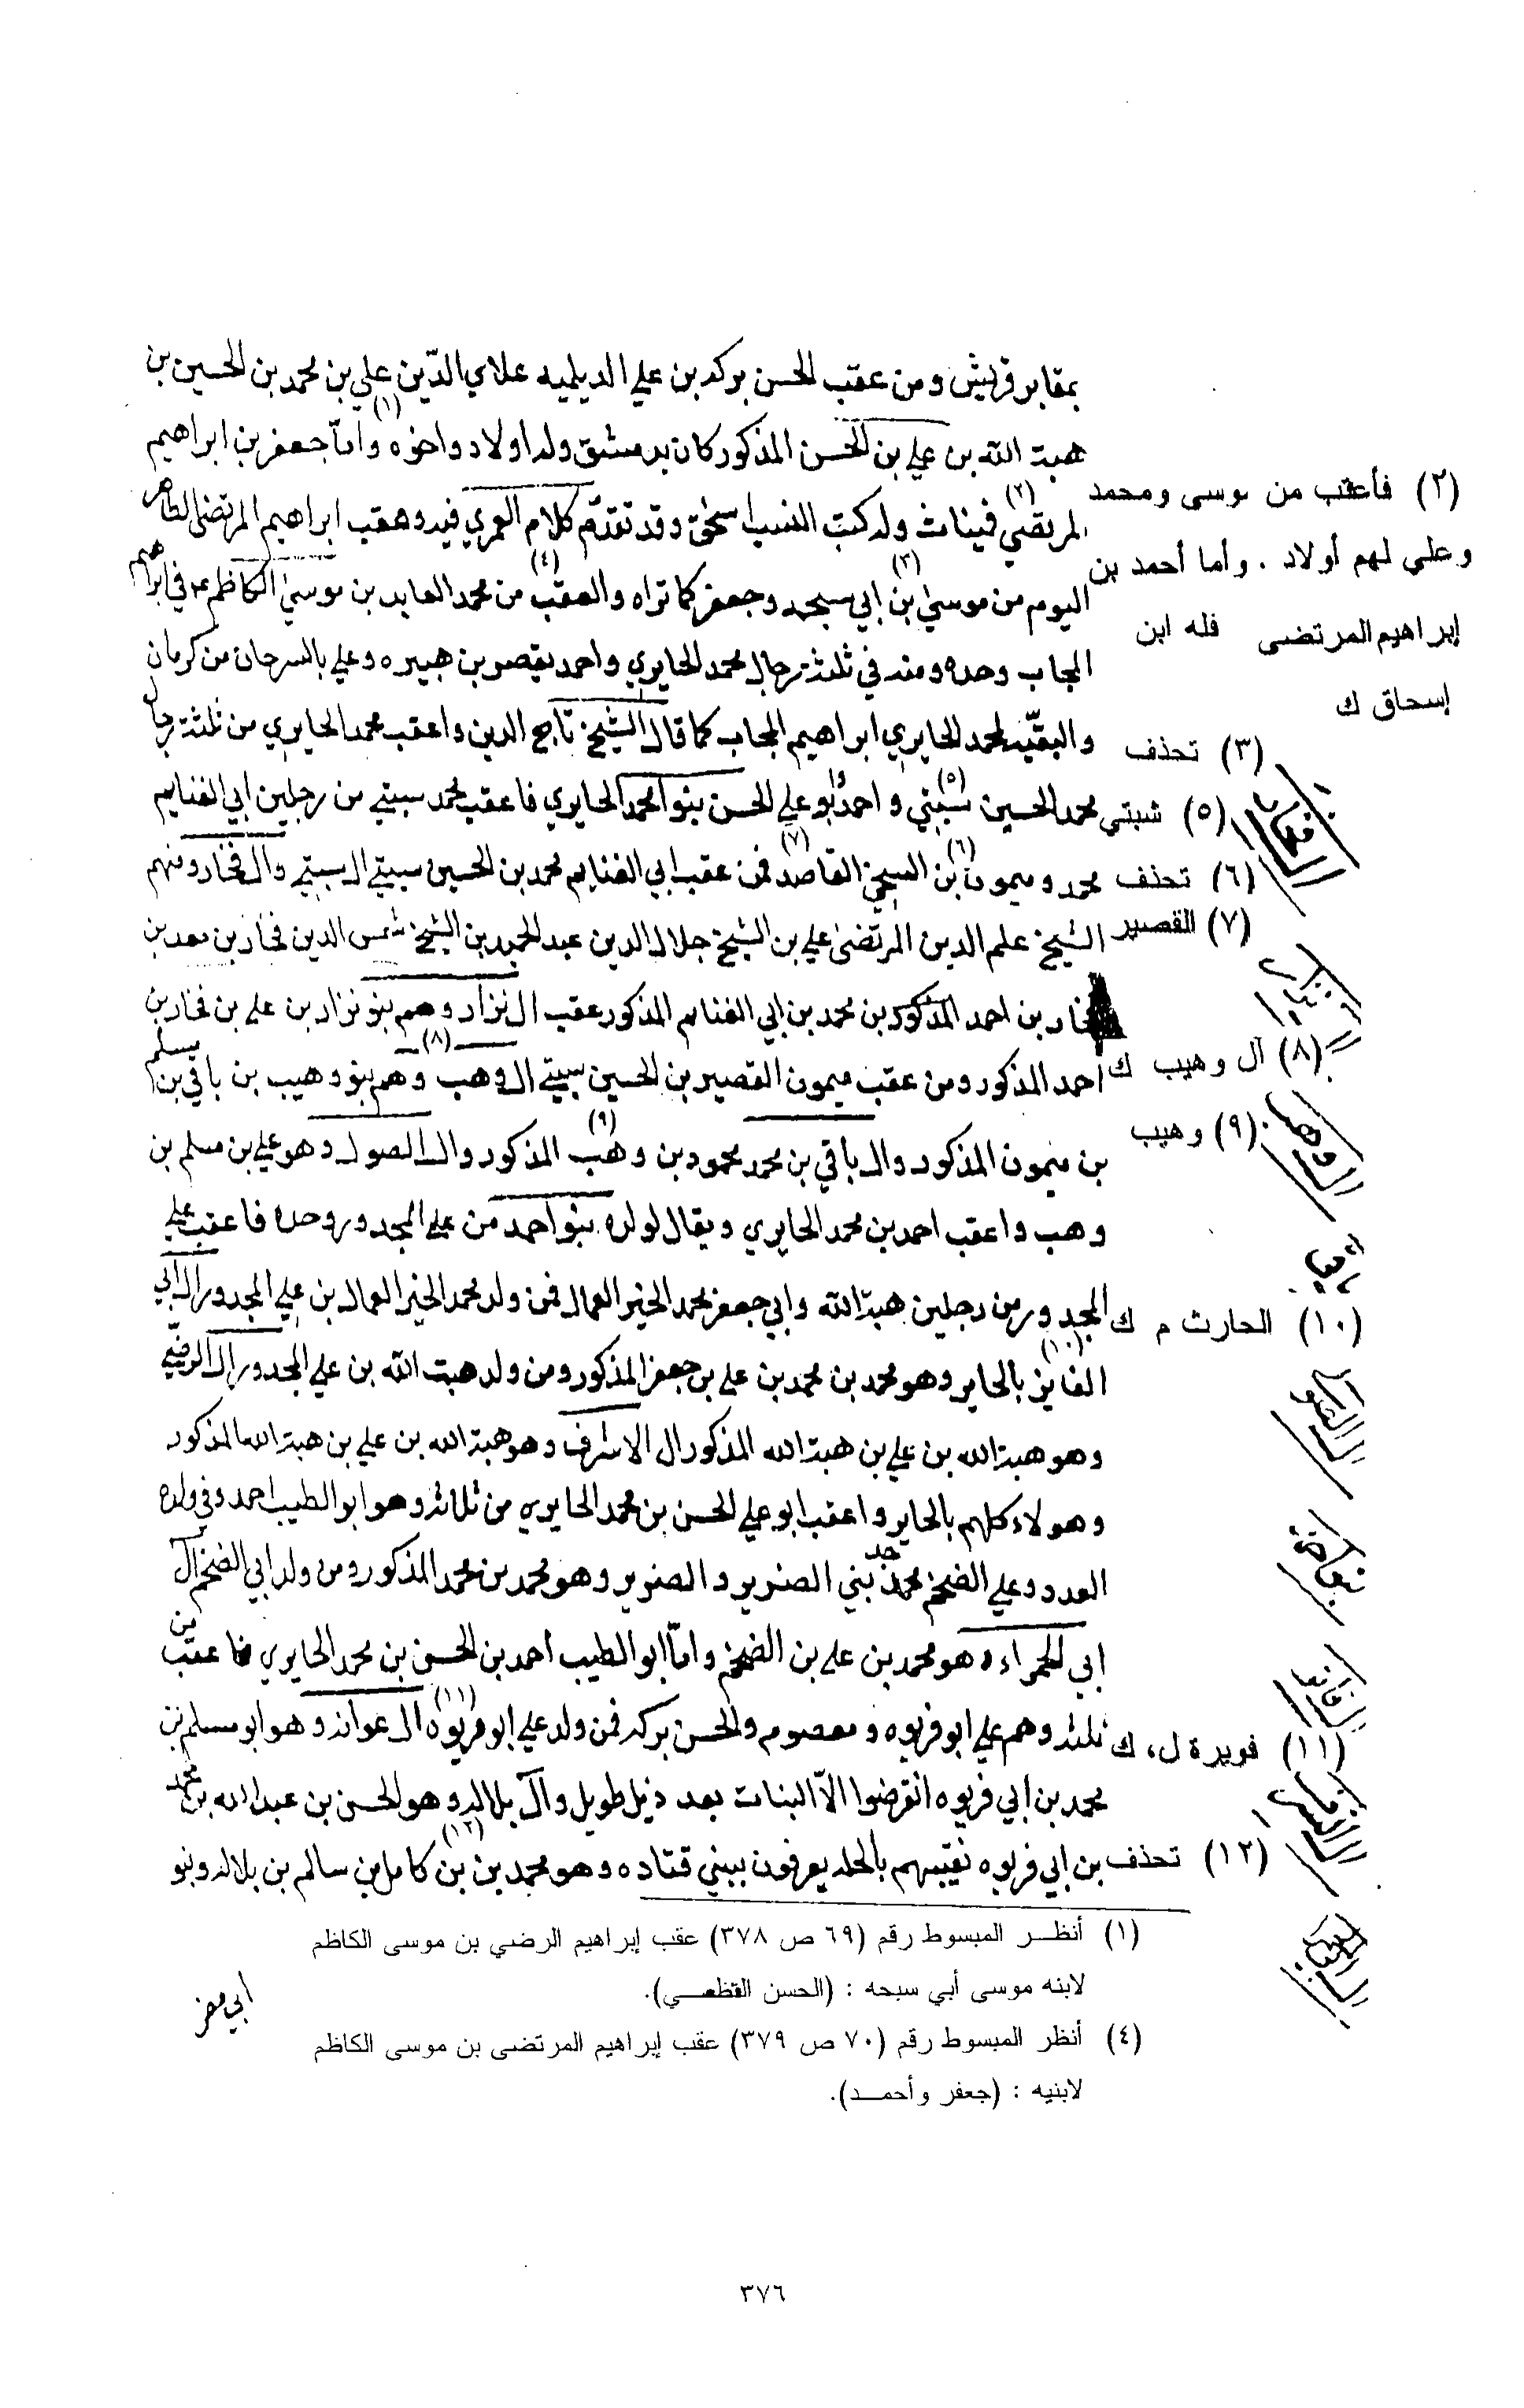 بمقابر قريش ومن عقب الحسن بركه بن علي الديلميه علاي الدّين علي بن محمد بن الحسين بن
هبة الله بن علي بن الحسن المذكور كان بدمشق وله اولاد واخوه (١) وامّا جعفر بن ابراهيم
المرتضي فيناث (٢) وله كتب النسب اسحٰق وقد تقدّم كلام العمري فيه وعقب ابراهيم المرتضى الظاهر
اليوم من موسىٰ بن (٣) ابي سبحه وجعفر كما تراه والعقب (٤) من محمد العابد بن موسىٰ الكاظم ع م في ابراهيم
المجاب وحده ومنه في ثلثة رجال محمد الحايري واحمد بقصر بن هبيره وعلي بالسرجان من كرمان
والبقيّه لمحمد الحايري ابراهيم المجاب كما قال الشيخ تاج الدين واعقب محمد الحايري من ثلثة رجال
محمد الحسين شبتي (٥) واحمد وابو علي الحسن بنوا محمد الحايري فاعقب محمد سبيتي من رجلين ابي الغنايم
محمد وميمون بن (٦) السخي القاصد (٧) فمن عقب ابي الغنايم محمد بن الحسين سبيتي ال سبيتي وال فخار ومنهم
الشيخ علم الدين المرتضىٰ علي بن الشيخ جلال الدين عبد الحميد بن الشيخ شمس الدين فخار بن معد بن
فخار بن احمد المذكور بن محمد بن ابي الغنايم المذكور عقب ال نزار وهم بنو نزار بن علي بن فخار بن
احمد المذكور ومن عقب ميمون القصير بن الحسين سبيتي ال وهب (٨) وهم بنو وهيب بن باقي بن مسلم
بن ميمون المذكور وال باقي بن محمد محمود بن وهب (٩) المذكور وال الصول وهو علي بن مسلم بن
وهب واعقب احمد بن محمد الحايري ويقال لولده بنو احمد من علي المجدور وحده فاعقب علي
المجدور من رجلين هبة الله وابي جعفر محمد الخير العمال فمن ولد محمد الخير العمال بن علي المجدور ال ابي
الفايز (١٠) بالحاير وهو محمد بن محمد بن علي بن جعفر المذكور ومن ولد هبت الله بن علي المجدور ال الرضي
وهو هبة الله بن علي بن هبة الله المذكور ال الاشرف وهو هبة الله بن علي بن هبة الله المذكور
وهولاء كلهم بالحاير واعقب ابو علي الحسن بن محمد الحايري من ثلاثه وهو ابو الطيب احمد وفي ولده
العدد وعلي الضخم محمد جد بني الضرير والصنوبر وهو محمد بن محمد المذكور ومن ولد ابي الضخم آل
ابي الحمراء وهو محمد بن علي بن الضخم وامّا ابو الطيب احمد بن الحسن بن محمد الحايري فاعقب من
ثلثه وهم علي ابو فريوه ومعصوم والحسن بركه فمن ولد علي ابو فريوه (١١) ال عوانه وهو ابو مسلم بن
محمد بن ابي فريوه انقرضوا الّا البنات بعد ذيل طويل وآل بلاله وهو الحسن بن عبد الله بن محمد
بن ابي فريوه نقيبهم بالحله يعرفون ببني قتاده وهو محمد بن بن (١٢) كامل بن سالم بن بلاله وبنو
ابي مضر
(٢) فأعقب من موسى ومحمد
وعلي لهم أولاد . وأما أحمد بن
إبراهيم المرتضى فله ابن
إسحاق ك
(٣) تحذف
(٥) شبتي
(٦) تحذف
(٧) القصير
(٨) آل وهيب ك
(٩) وهيب
(١٠) الحارث م ك
(١١) فويرة ل، ك
(١٢) تحذف
(١) أنظر المبسوط رقم (٦٩ ص ٣٧٨) عقب إبراهيم الرضي بن موسى الكاظم
لابنه موسى أبي سبحه : (الحسن القظعي).
(٤) أنظر المبسوط رقم (٧٠ ص ٣٧٩) عقب إبراهيم المرتضى بن موسى الكاظم
لابنيه : (جعفر وأحمد).
٣٧٦